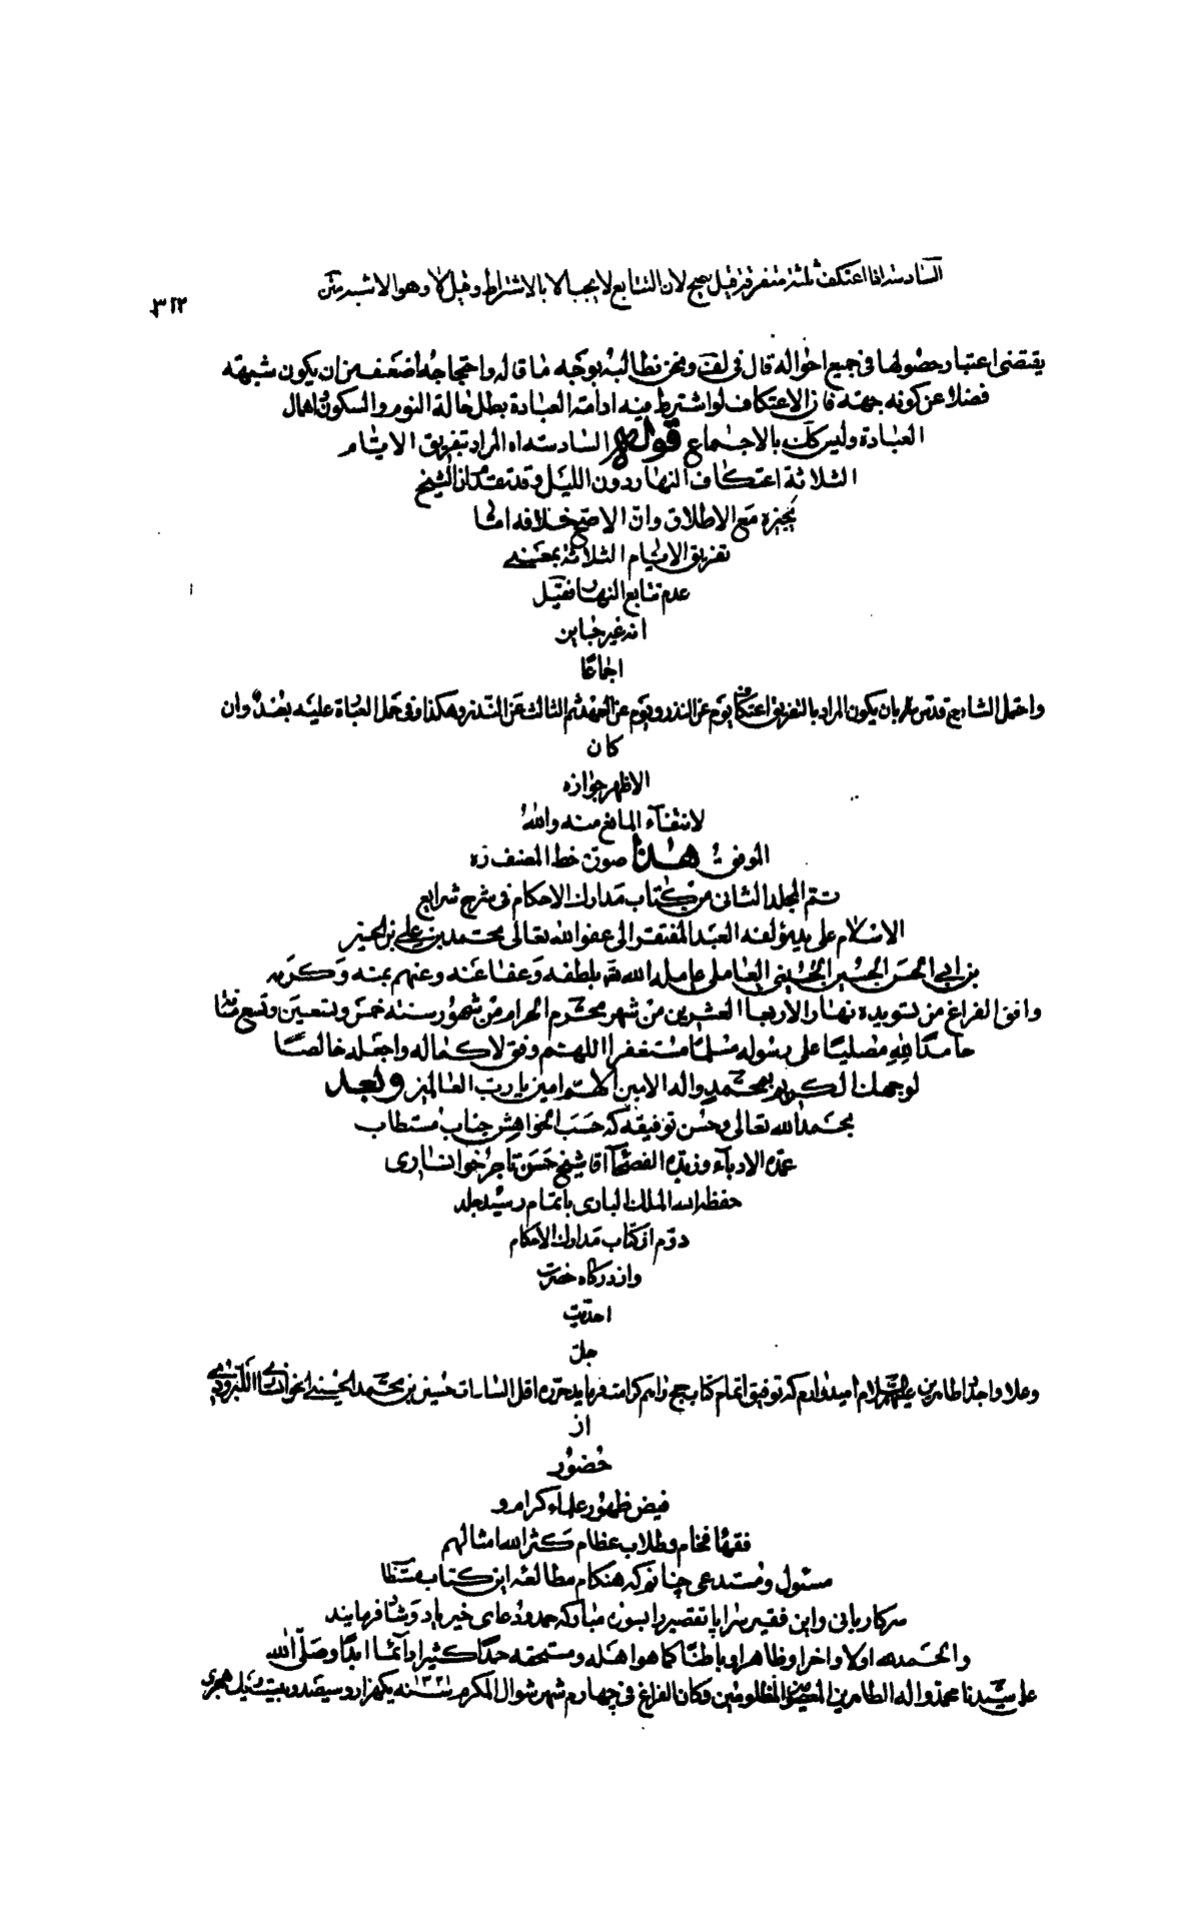 السادسة اذا اعتكف ثلثة متفرقة قيل يصح لان التتابع لا يجب الا بالاشتراط وقيل لا وهو الاشبه متن
٣٢٢
يقتضى اعتبار حصولها فى جميع احواله قال فى لف ونحن نطالبه بوجه ما قاله واحتجاجه اضعف من ان يكون شبهة
فضلا عن كونه جهة فان الاعتكاف لو اشترط فيه ادامة العبادة بطل حالة النوم والسكون واهمال
العبادة وليس كك بالاجماع قوله السادسة اه المراد بتفريق الايام
الثلاثة اعتكاف النهار دون الليل وقد تقدم ان الشيخ
يجيزه مع الاطلاق وان الاصح خلافه اما
تفريق الايام الثلاثة بمعنى
عدم تتابع النهار فقيل
انه غير جايز
اجماعا
واحتمل الشارح قدس سره بان يكون المراد بالتفريق اعتكاف يوم عن النذر ويوم عن العهد ثم الثالث عن النذر وهكذا وفى حمل العبارة عليه بعد وان
كان
الاظهر جوازه
لانتفاء المانع منه والله
الموفق هذا صورة خط المصنف ره
تم المجلد الثانى من كتاب مدارك الاحكام فى شرح شرايع
الاسلام على يد مؤلفه العبد المفتقر الى عفو الله تعالى محمد بن على بن الحسين
بن ابى الحسن الحسينى العاملى عامله الله بلطفه وعفا عنه وعنهم بمنه وكرمه
وافق الفراغ من تسويده نهار الاربعا العشرين من شهر محرم الحرام من شهور سنة خمس وتسعين وتسع مائة
حامدا لله مصليا على رسوله مسلما مستغفرا اللهم وفق لاكماله واجعله خالصا
لوجهك الكريم بمحمد واله الامين اللهم امين يا رب العالمين وبعد
بحمد الله تعالى وحسن توفيقه كه حسب الخواهش جناب مستطاب
عمدة الادباء وزبدة الفصحا اقا شيخ حسن تاجر خوانسارى
حفظه الله الملك البارى باتمام رسيد جلد
دوم از كتاب مدارك الاحكام
واز دركاه حضرت
احديت
جل
وعلا واجداد طاهرين عليهم السلام اميدوارم كه توفيق اتمام كتاب حج را هم كرامت فرمايد حرره اقل السادات حسين بن محمد الحسينى الخوانسارى
از
حضور
فيض ظهور علماء كرام و
فقهاء فخام وطلاب عظام كثر الله امثالهم
مسئول ومستدعى چنانم كه هنكام مطالعه اين كتاب مستطا
سركار بانى واين فقير سراپا تقصير را بسوره مباركه حمد ودعاى خير ياد وشاد فرمايند
والحمد لله اولا واخرا وظاهرا وباطنا كما هو اهله ومستحقه حمدا كثيرا دائما ابدا وصلى الله
على سيدنا محمد واله الطاهرين المعصومين المظلومين وكان الفراغ فى چهارم شهر شوال المكرم سنه ١٣٢١ يكهزار وسيصد وبيست ويك هجرى